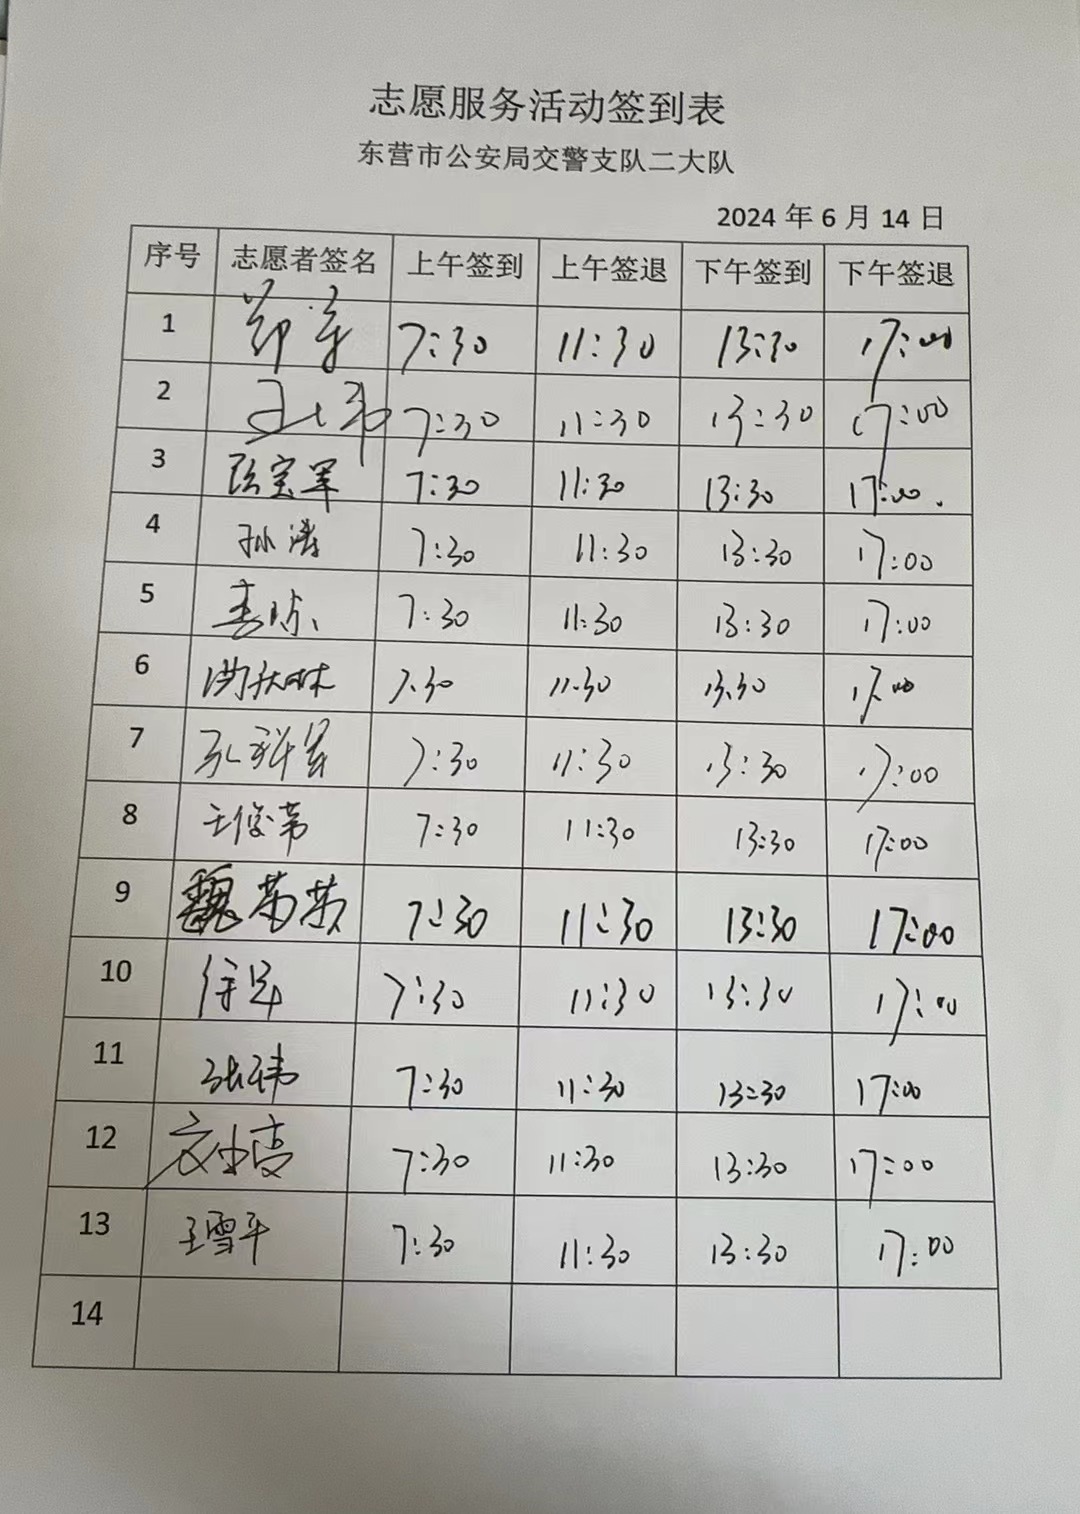 志愿服务活动签到表
东营市公安局交警支队二大队
2024 年 6 月 14 日
序号 志愿者签名 上午签到 上午签退 下午签到 下午签退
1 7:30 11:30 13:30 17:00
2 7:30 11:30 13:30 17:00
3 7:30 11:30 13:30 17:00.
4 孙涛 7:30 11:30 13:30 17:00
5 7:30 11:30 13:30 17:00
6 7:30 11:30 13:30 17:00
7 7:30 11:30 13:30 17:00
8 7:30 11:30 13:30 17:00
9 7:30 11:30 13:30 17:00
10 7:30 11:30 13:30 17:00
11 张玮 7:30 11:30 13:30 17:00
12 7:30 11:30 13:30 17:00
13 王雪平 7:30 11:30 13:30 17:00
14